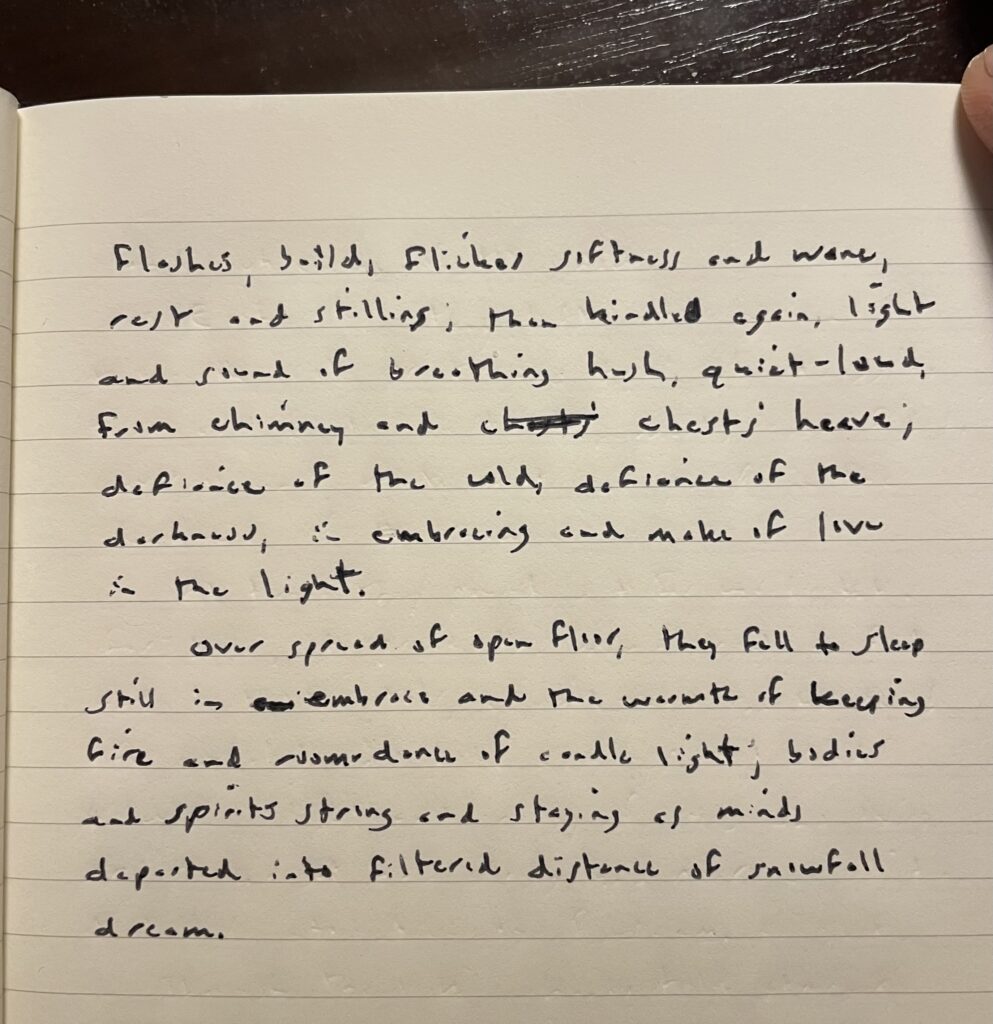 Flashes, build, flicker softness and wane,
rest and stilling; then kindled again, light
and sound of breathing hush, quiet-loud,
from chimney and chests' chests' heave;
defiance of the cold, defiance of the
darkness, in embracing and make of love
in the light.
Over spread of open floor, they fall to sleep
still in embrace and the warmth of keeping
fire and dance of candle light; bodies
and spirits strong and staying as minds
departed into filtered distance of snowfall
dream.